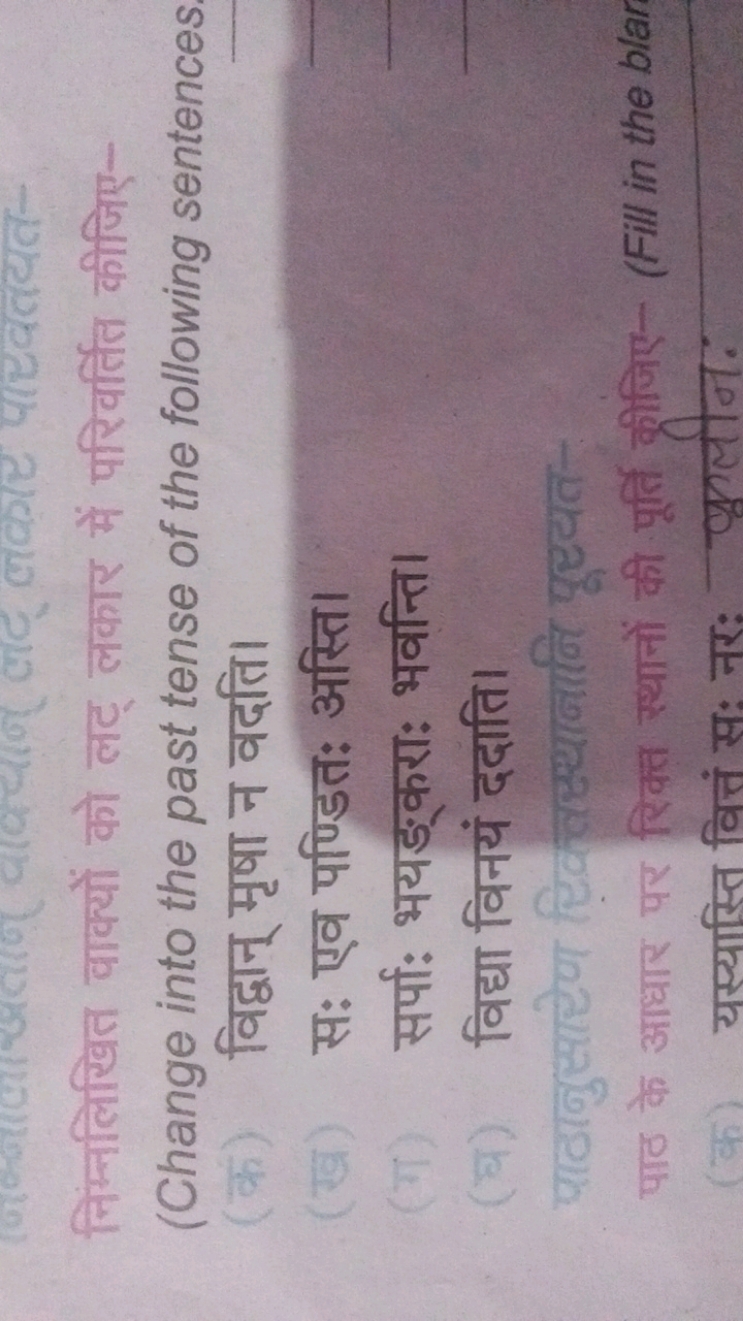 निम्नलिखितान् वाक्यान् लट् लकारे परिवर्तयत–
निम्नलिखित वाक्यों को लट् लकार में परिवर्तित कीजिए–
(Change into the past tense of the following sentences.
(क) विद्वान् मृषा न वदति।
(ख) सः एव पण्डितः अस्ति।
(ग) सर्पाः भयङ्कराः भवन्ति।
(घ) विद्या विनयं ददाति।
पाठानुसारेण रिक्तस्थानानि पूरयत–
पाठ के आधार पर रिक्त स्थानों की पूर्ति कीजिए– (Fill in the
(क) यस्यास्ति वित्तं सः नरः कुलीन: